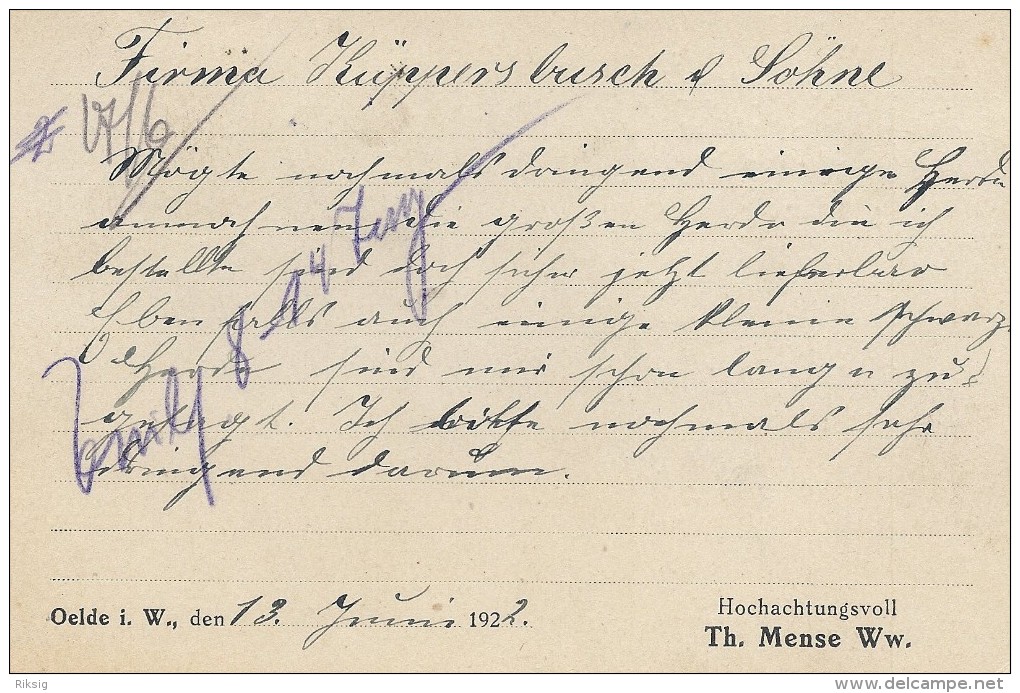 Firma Küppersbusch & Söhne
17/6
Mögte nochmals dringend einige Herde
annahnen die großen Herde die ich
bestellte sind doch sicher jetzt lieferbar
Ebenfalls auch einige kleine schwarze
Herde sind mir schon lange zu-
gesagt. Ich bitte nochmals sehr
dringend darum.
8-14 Tag
Oelde i. W., den 13. Juni 1922.
Hochachtungsvoll
Th. Mense Ww.
Riksig
www.delcampe.net